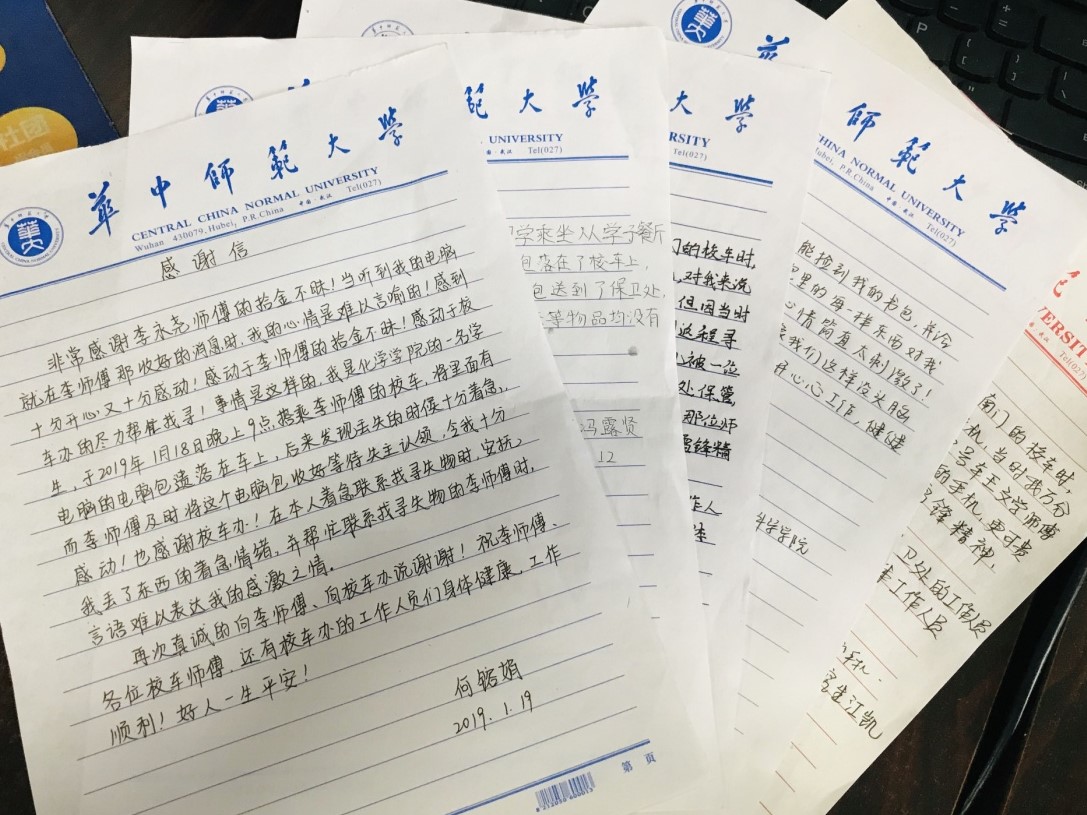 社团
華中師範大學
CENTRAL CHINA NORMAL UNIVERSITY
Wuhan 430079, Hubei, P.R.China 中国·武汉 Tel(027)
感谢信
非常感谢李永尧师傅的拾金不昧！当听到我的电脑
就在李师傅那收好的消息时，我的心情是难以言喻的！感到
十分开心又十分感动！感动于李师傅的拾金不昧！感动于校
车办的尽力帮催找寻！事情是这样的，我是化学学院的一名学
生，于2019年1月18日晚上9点搭乘李师傅的校车，将里面有
电脑的电脑包遗落在车上，后来发现丢失的时候十分着急，
而李师傅及时将这个电脑包收好等待失主认领，令我十分
感动！也感谢校车办！在本人着急联系找寻失物时，安抚
我丢了东西的着急情绪，并帮忙联系找寻失物的李师傅时，
言语难以表达我的感激之情。
再次真诚的向李师傅、向校车办说谢谢！祝李师傅、
各位校车师傅，还有校车办的工作人员们身体健康，工作
顺利！好人一生平安！
2019.1.19
第 页
範大學
UNIVERSITY
中国·武汉 Tel(027)
学乘坐从学子餐厅
包落在了校车上，
包送到了保卫处，
等物品均没有
冯露贤
12
大學
RSITY
武汉 Tel(027)
门的校车时，
，对我来说
但因当时
返程寻
被一位
处保管
那位师
雷锋精
作人
師範大學
CHINA NORMAL UNIVERSITY
Hubei, P.R.China 中国·武汉 Tel(027)
能捡到我的书包，并泠
里的每一样东西对我
心情简直太刺激了！
我们这样没头脑
心心工作，健健
科学学院
VERSITY
Tel(027)
南门的校车时，
机，当时我万分
号车王文学师傅
的手机，更可贵
锋精神，
卫处的工作人员
工作人员
手机．
江凯